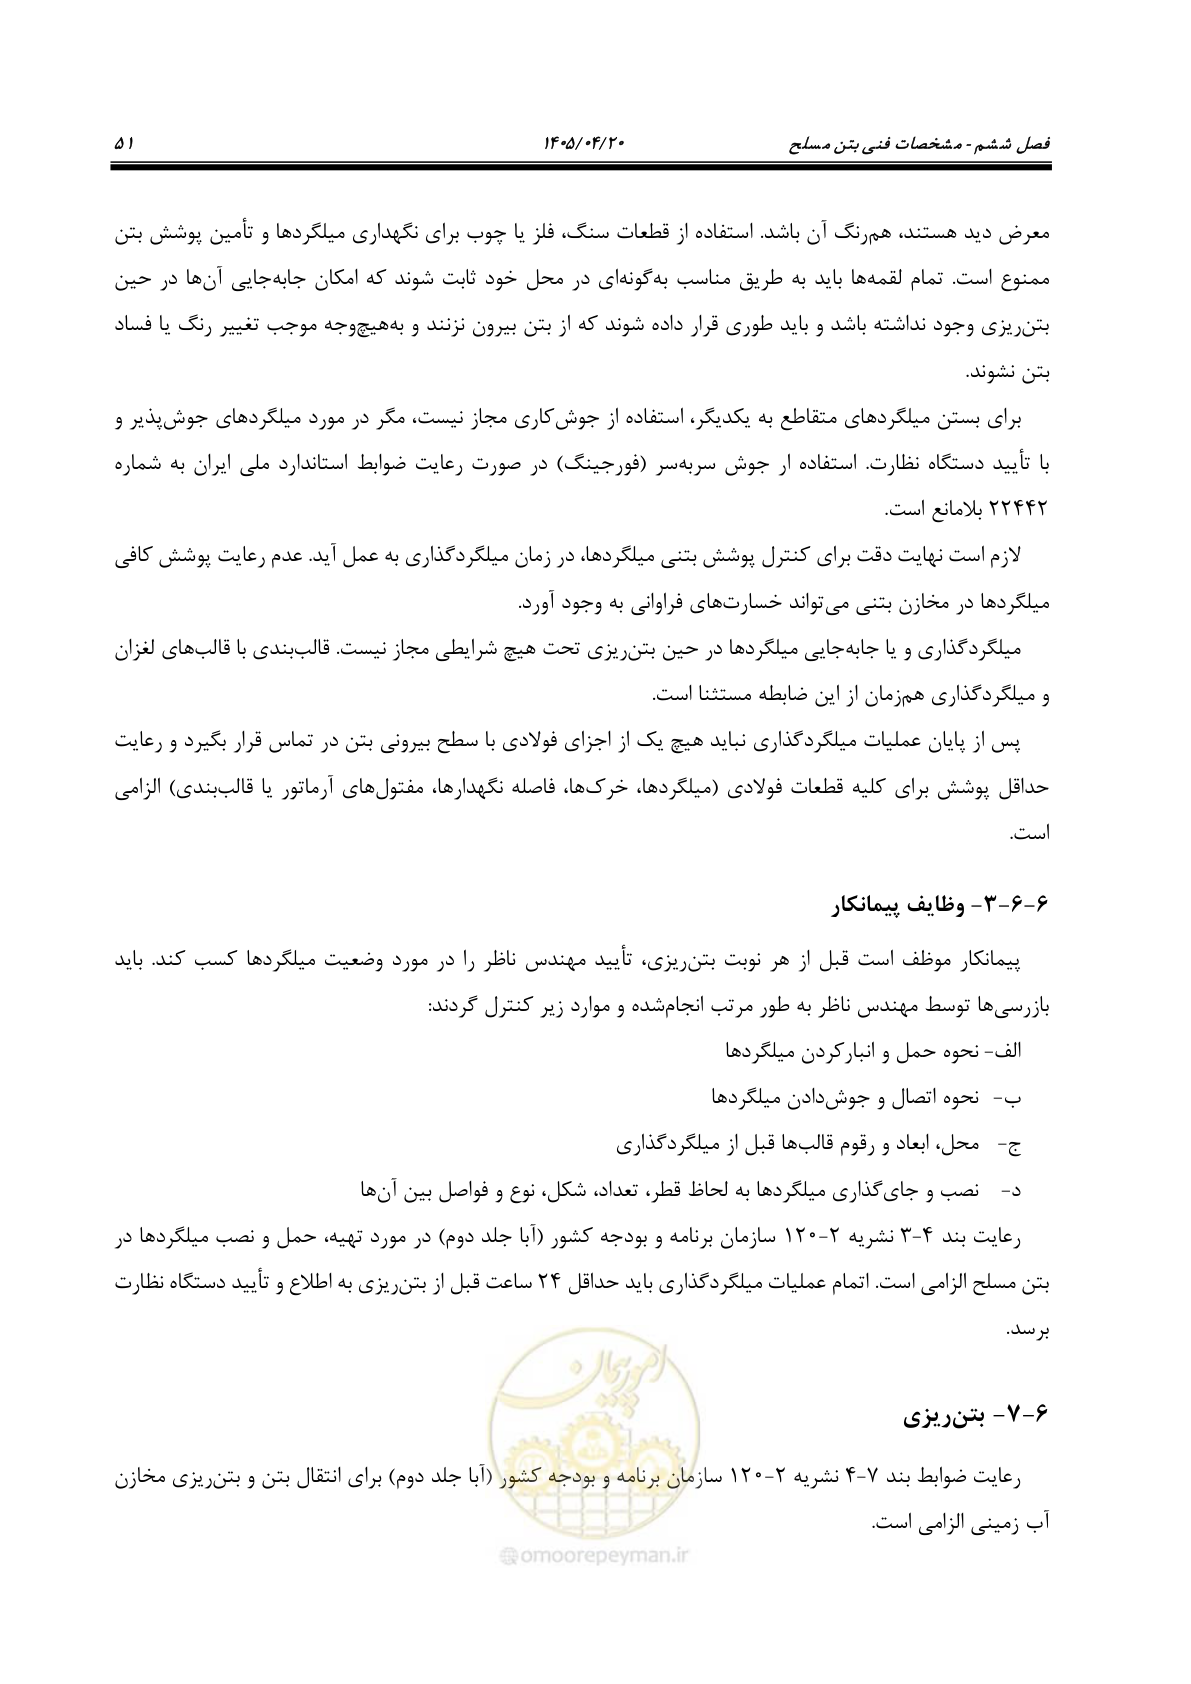 فصل ششم - مشخصات فنی بتن مسلح ۱۴۰۵/۰۴/۲۰ ۵۱
معرض دید هستند، هم‌رنگ آن باشد. استفاده از قطعات سنگ، فلز یا چوب برای نگهداری میلگردها و تأمین پوشش بتن
ممنوع است. تمام لقمه‌ها باید به طریق مناسب به‌گونه‌ای در محل خود ثابت شوند که امکان جابه‌جایی آن‌ها در حین
بتن‌ریزی وجود نداشته باشد و باید طوری قرار داده شوند که از بتن بیرون نزنند و به‌هیچ‌وجه موجب تغییر رنگ یا فساد
بتن نشوند.
برای بستن میلگردهای متقاطع به یکدیگر، استفاده از جوش‌کاری مجاز نیست، مگر در مورد میلگردهای جوش‌پذیر و
با تأیید دستگاه نظارت. استفاده ار جوش سربه‌سر (فورجینگ) در صورت رعایت ضوابط استاندارد ملی ایران به شماره
۲۲۴۴۲ بلامانع است.
لازم است نهایت دقت برای کنترل پوشش بتنی میلگردها، در زمان میلگردگذاری به عمل آید. عدم رعایت پوشش کافی
میلگردها در مخازن بتنی می‌تواند خسارت‌های فراوانی به وجود آورد.
میلگردگذاری و یا جابه‌جایی میلگردها در حین بتن‌ریزی تحت هیچ شرایطی مجاز نیست. قالب‌بندی با قالب‌های لغزان
و میلگردگذاری هم‌زمان از این ضابطه مستثنا است.
پس از پایان عملیات میلگردگذاری نباید هیچ یک از اجزای فولادی با سطح بیرونی بتن در تماس قرار بگیرد و رعایت
حداقل پوشش برای کلیه قطعات فولادی (میلگردها، خرک‌ها، فاصله نگهدارها، مفتول‌های آرماتور یا قالب‌بندی) الزامی
است.
۶-۶-۳- وظایف پیمانکار
پیمانکار موظف است قبل از هر نوبت بتن‌ریزی، تأیید مهندس ناظر را در مورد وضعیت میلگردها کسب کند. باید
بازرسی‌ها توسط مهندس ناظر به طور مرتب انجام‌شده و موارد زیر کنترل گردند:
الف- نحوه حمل و انبارکردن میلگردها
ب- نحوه اتصال و جوش‌دادن میلگردها
ج- محل، ابعاد و رقوم قالب‌ها قبل از میلگردگذاری
د- نصب و جای‌گذاری میلگردها به لحاظ قطر، تعداد، شکل، نوع و فواصل بین آن‌ها
رعایت بند ۴-۳ نشریه ۲-۱۲۰ سازمان برنامه و بودجه کشور (آبا جلد دوم) در مورد تهیه، حمل و نصب میلگردها در
بتن مسلح الزامی است. اتمام عملیات میلگردگذاری باید حداقل ۲۴ ساعت قبل از بتن‌ریزی به اطلاع و تأیید دستگاه نظارت
برسد.
امور پیمان
۶-۷- بتن‌ریزی
رعایت ضوابط بند ۷-۴ نشریه ۲-۱۲۰ سازمان برنامه و بودجه کشور (آبا جلد دوم) برای انتقال بتن و بتن‌ریزی مخازن
آب زمینی الزامی است.
@omoorepeyman.ir